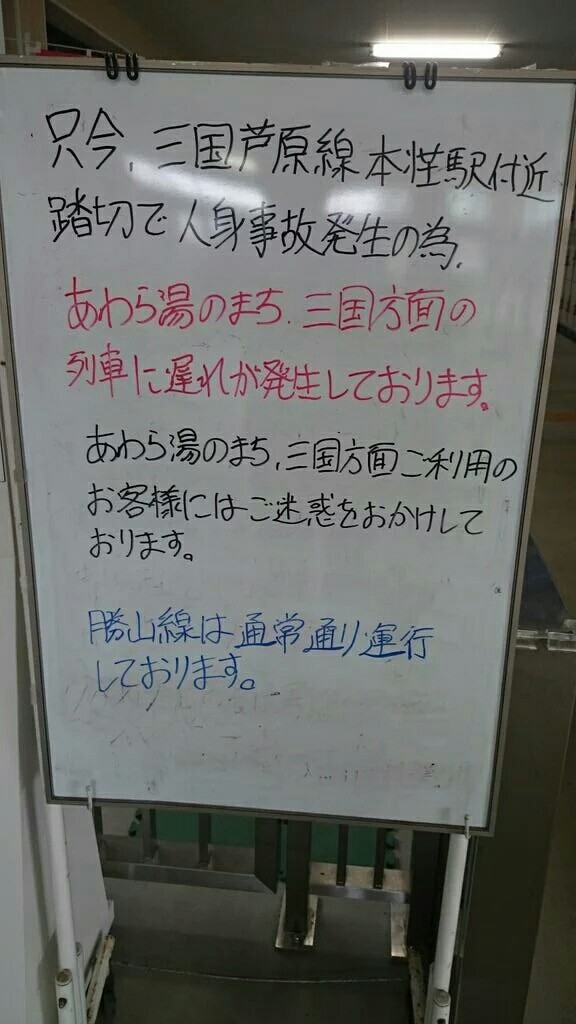 只今、三国芦原線 本荘駅付近
踏切で人身事故発生の為、
あわら湯のまち、三国方面の
列車に遅れが発生しております。
あわら湯のまち、三国方面ご利用の
お客様にはご迷惑をおかけして
おります。
勝山線は通常通り運行
しております。